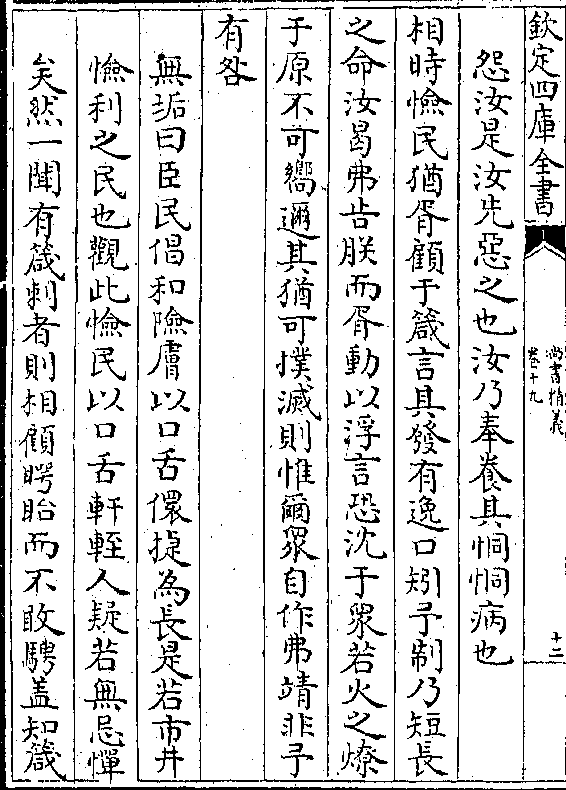 欽定四庫全書
尚書精義
卷十九
十二
怨汝是汝先惡之也汝乃奉養其恫恫病也
相時憸民猶胥顧于箴言其發有逸口矧予制乃短長
之命汝曷弗告朕而胥動以浮言恐沈于衆若火之燎
于原不可嚮邇其猶可撲滅則惟爾衆自作弗靖非予
有咎
無垢曰臣民倡和險膚以口舌儇㨗為長是若市井
憸利之民也觀此憸民以口舌軒輊人疑若無忌憚
矣然一聞有箴刺者則相顧睅眙而不敢騁盖知箴